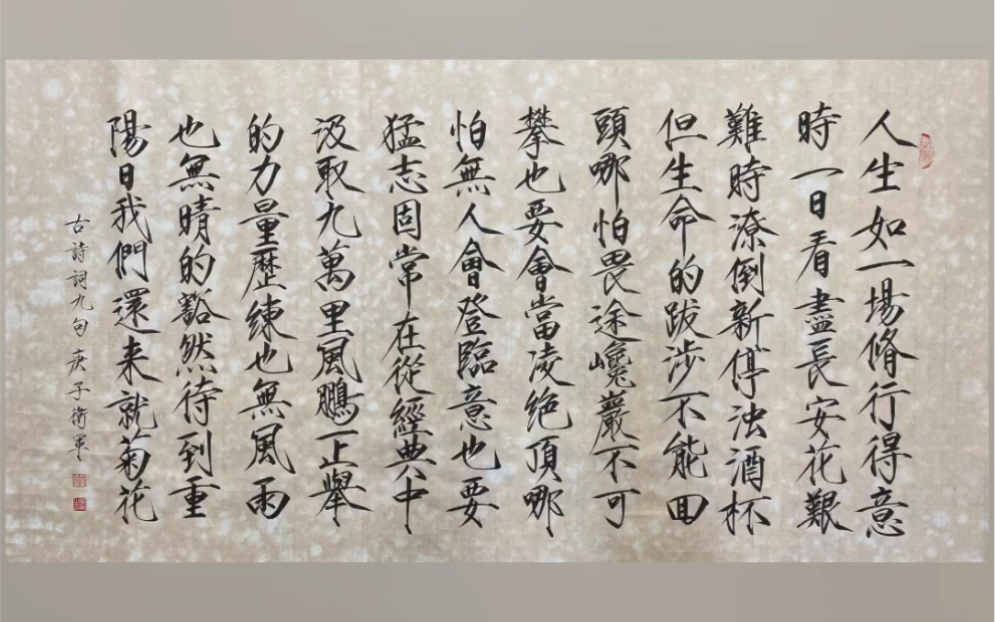 人生如一場脩行得意
時一日看盡長安花艱
難時潦倒新停浊酒杯
但生命的跋涉不能回
頭哪怕畏途巉巖不可
攀也要會當凌绝頂哪
怕無人會登臨意也要
猛志固常在從經典中
汲取九萬里風鵬正舉
的力量歷練也無風雨
也無晴的豁然待到重
陽日我們還来就菊花
古詩詞九句 庚子衛軍